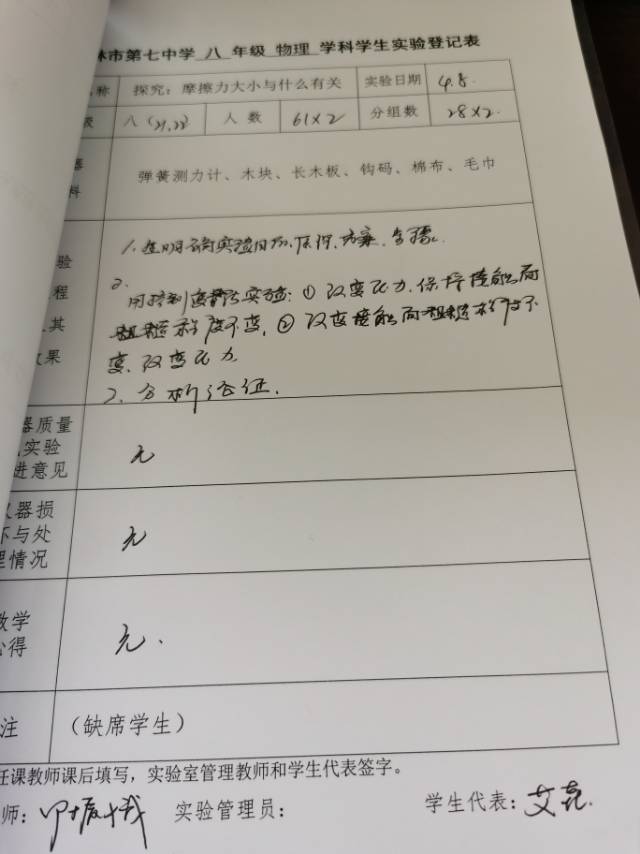 林市第七中学 八 年级 物理 学科学生实验登记表
称 探究：摩擦力大小与什么有关 实验日期 4.8.
八（21,22） 人数 61×2 分组数 28×2.
器 弹簧测力计、木块、长木板、钩码、棉布、毛巾
料
验 1. 实验目的、原理、方案、步骤.
程 2. 用控制变量法实验：① 改变压力，保持接触面
其 粗糙程度不变，② 改变接触面粗糙
果 变、改变压力
2、分析论证.
器质量
实验 无
进意见
仪器损
坏与处 无
理情况
教学
心得 无.
注 （缺席学生）
任课教师课后填写，实验室管理教师和学生代表签字。
师： 实验管理员： 学生代表：艾